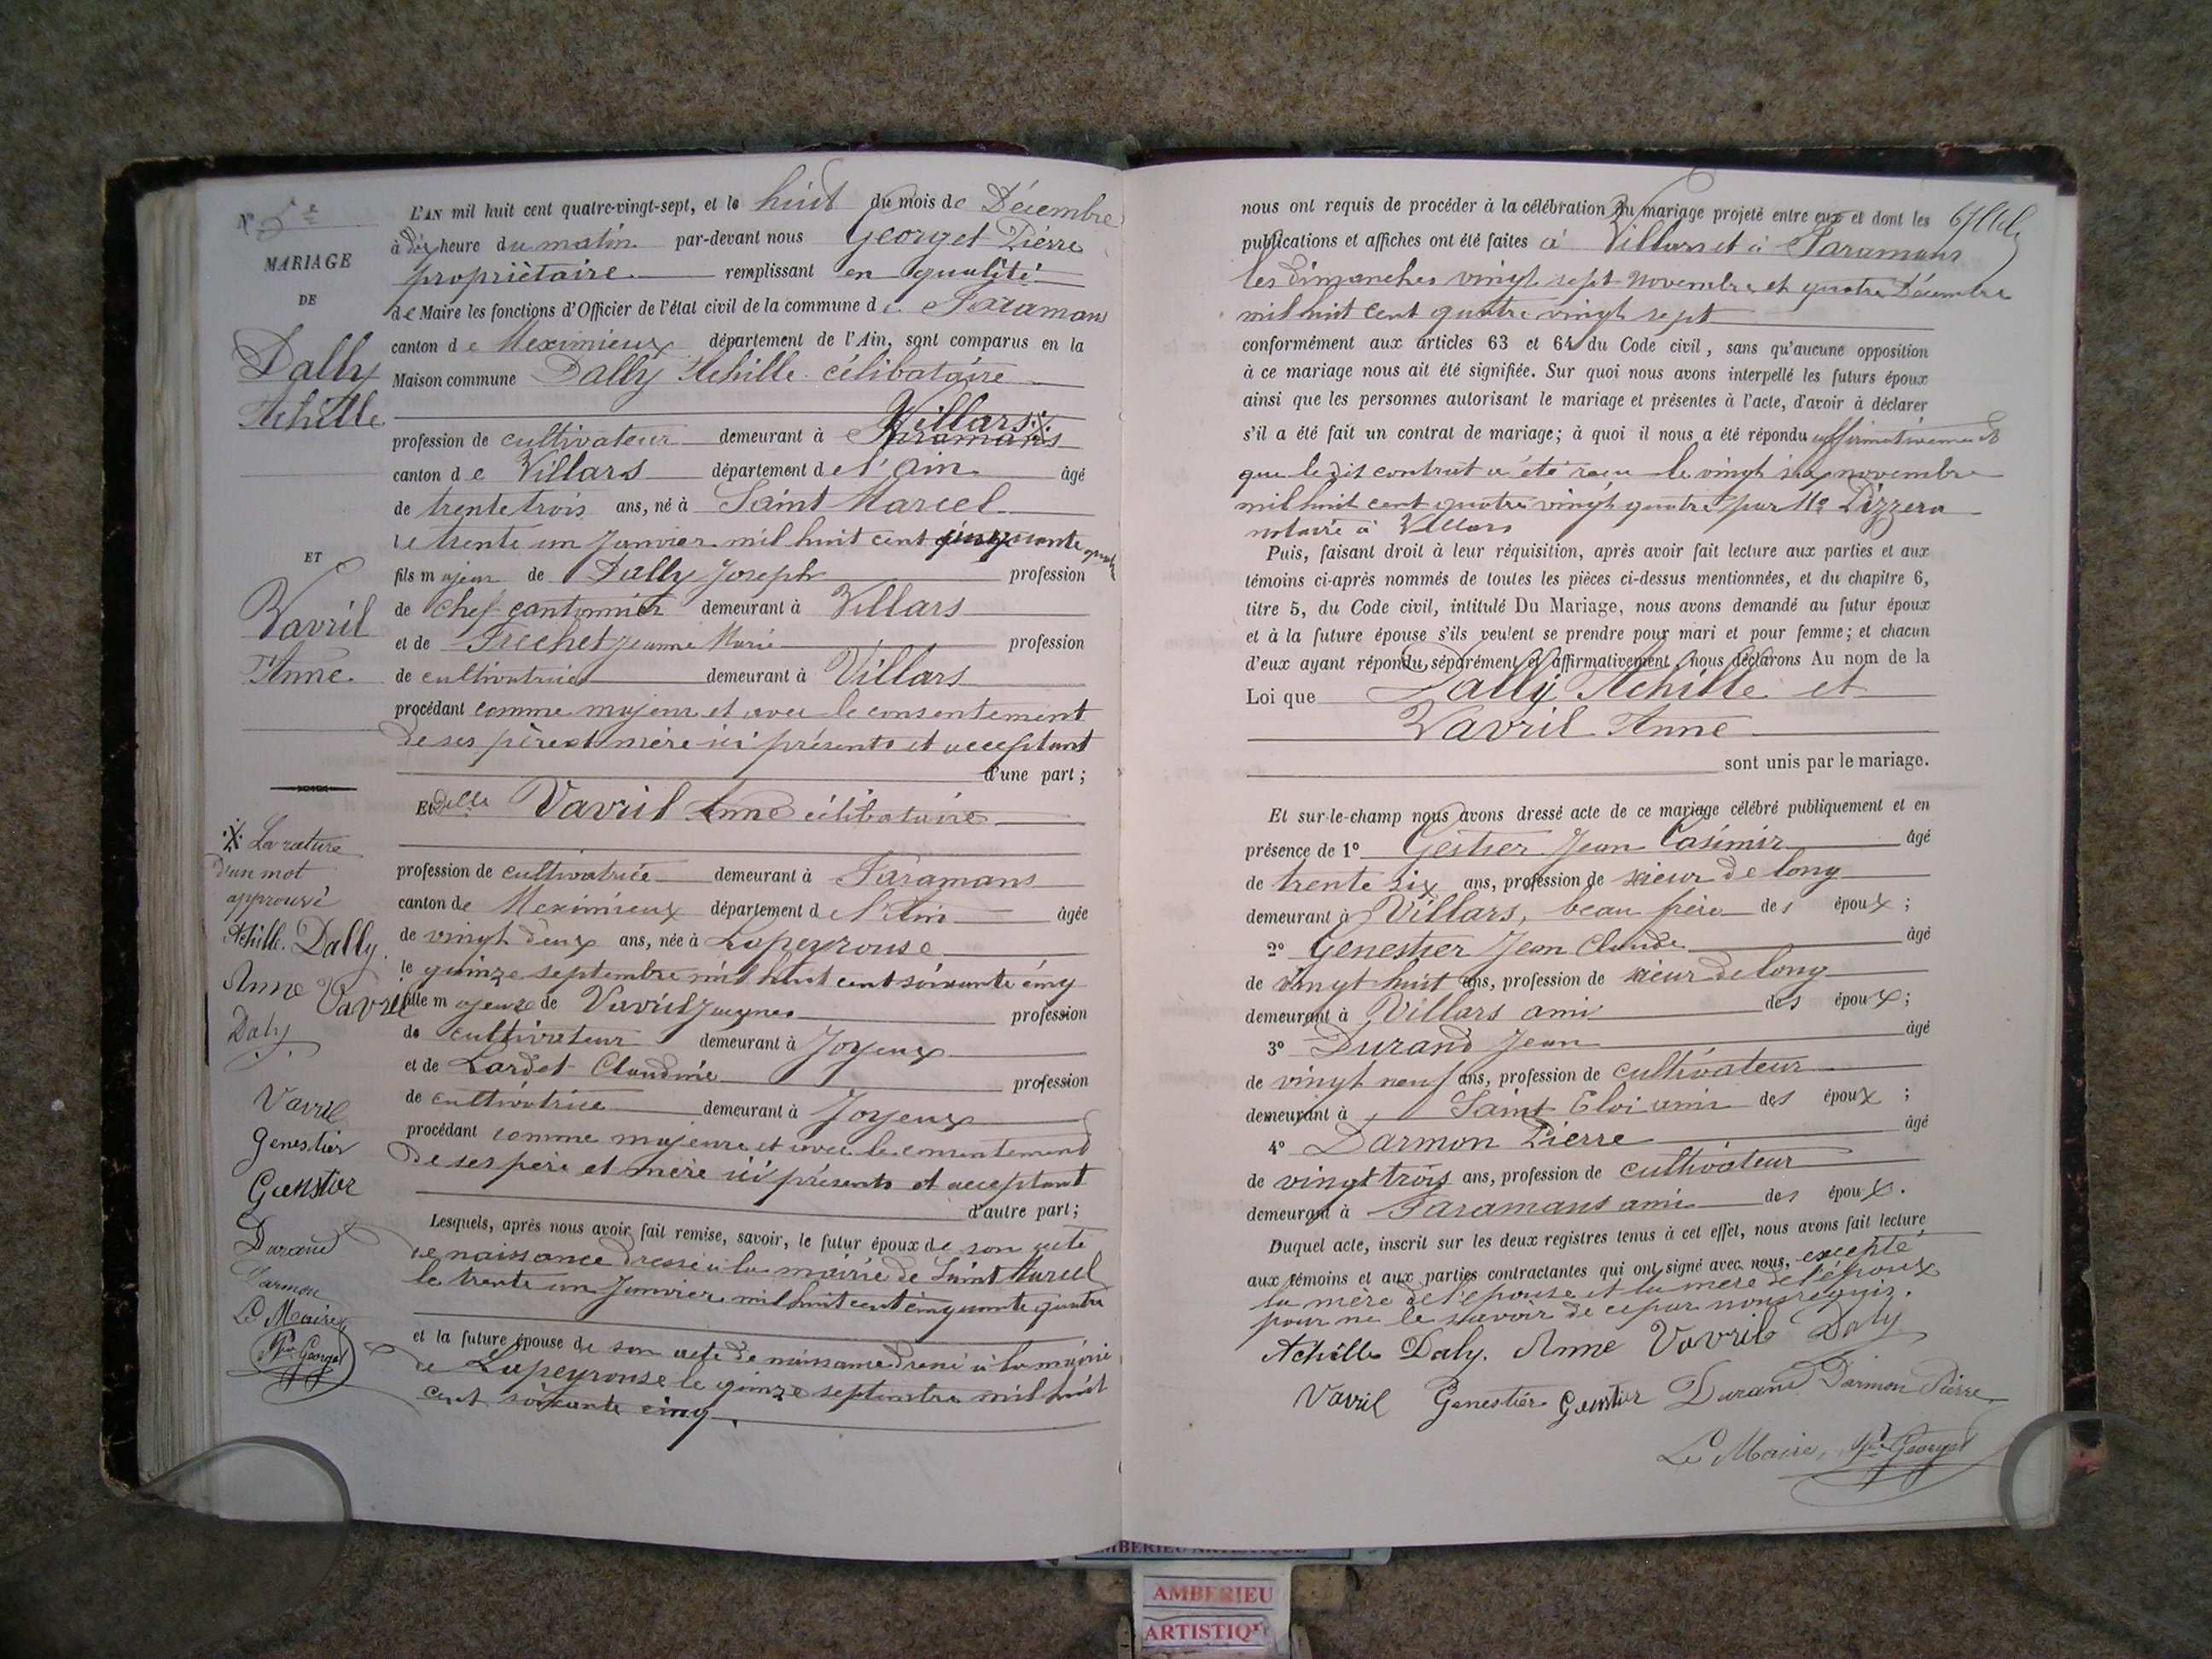 N° 5e
MARIAGE
DE
Dally
Achille
ET
Vavril
Anne
⁒ La rature
d'un mot
approuvé
Achille Dally.
Anne Vavril
Daly
Vavril
Genestier
Genestier
Durand
Darmon
Le Maire
Pre Georget
L'AN mil huit cent quatre-vingt-sept, et le huit du mois de Décembre
à dix heure du matin par-devant nous Georget Pierre
propriètaire remplissant en qualité
de Maire les fonctions d'Officier de l'état civil de la commune de Faramans
canton de Meximieux département de l'Ain, sont comparus en la
Maison commune Dally Achille célibataire
Villars ⁒
profession de cultivateur demeurant à Faramans
canton de Villars département de l'Ain âgé
de trente trois ans, né à Saint Marcel
le trente un Janvier mil huit cent cinquante quatre
fils majeur de Dally Joseph profession
de chef cantonnier demeurant à Villars
et de Frechet Jeanne Marie profession
de cultivatrice demeurant à Villars
procédant comme majeur et avec le consentement
de ses père et mère ici présents et acceptant
d'une part;
Et delle Vavril Anne célibataire
profession de cultivatrice demeurant à Faramans
canton de Meximieux département de l'Ain âgée
de vingt deux ans, née à Lapeyrouse
le quinze septembre mil huit cent soixante cinq
fille majeure de Vavril Jacques profession
de cultivateur demeurant à Joyeux
et de Lardet Claudine profession
de cultivatrice demeurant à Joyeux
procédant comme majeure et avec le consentement
de ses père et mère ici présents et acceptant
d'autre part;
Lesquels, après nous avoir fait remise, savoir, le futur époux de son acte
de naissance dressé à la mairie de Saint Marcel
le trente un Janvier mil huit cent cinquante quatre
et la future épouse de son acte de naissance dressé à la mairie
de Lapeyrouse le quinze septembre mil huit
cent soixante cinq.
nous ont requis de procéder à la célébration du mariage projeté entre eux et dont les
publications et affiches ont été faites à Villars et à Faramans
les dimanches vingt sept novembre et quatre Décembre
mil huit cent quatre vingt sept
conformément aux articles 63 et 64 du Code civil, sans qu'aucune opposition
à ce mariage nous ait été signifiée. Sur quoi nous avons interpellé les futurs époux
ainsi que les personnes autorisant le mariage et présentes à l'acte, d'avoir à déclarer
s'il a été fait un contrat de mariage; à quoi il nous a été répondu affirmativement
que le dit contrat a été reçu le vingt six novembre
mil huit cent quatre vingt quatre par Me Pizzera
notaire à Villars
Puis, faisant droit à leur réquisition, après avoir fait lecture aux parties et aux
témoins ci-après nommés de toutes les pièces ci-dessus mentionnées, et du chapitre 6,
titre 5, du Code civil, intitulé Du Mariage, nous avons demandé au futur époux
et à la future épouse s'ils veulent se prendre pour mari et pour femme; et chacun
d'eux ayant répondu séparément et affirmativement, nous déclarons Au nom de la
Loi que Dally Achille et
Vavril Anne
sont unis par le mariage.
Et sur-le-champ nous avons dressé acte de ce mariage célébré publiquement et en
présence de 1° Gestier Jean Casimir âgé
de trente six ans, profession de scieur de long
demeurant à Villars, beau père des époux;
2° Genestier Jean Claude âgé
de vingt huit ans, profession de scieur de long
demeurant à Villars ami des époux;
3° Durand Jean âgé
de vingt neuf ans, profession de cultivateur
demeurant à Saint Eloi ami des époux;
4° Darmon Pierre âgé
de vingt trois ans, profession de cultivateur
demeurant à Faramans ami des époux.
Duquel acte, inscrit sur les deux registres tenus à cet effet, nous avons fait lecture
aux témoins et aux parties contractantes qui ont signé avec nous, excepté
la mère de l'épouse et la mère de l'époux
pour ne le savoir de ce par nous réquis.
Achille Daly. Anne Vavril Daly
Vavril Genestier Genestier Durand Darmon Pierre
Le Maire, Pre Georget
AMBERIEU ARTISTIQUE
AMBERIEU
ARTISTIQ